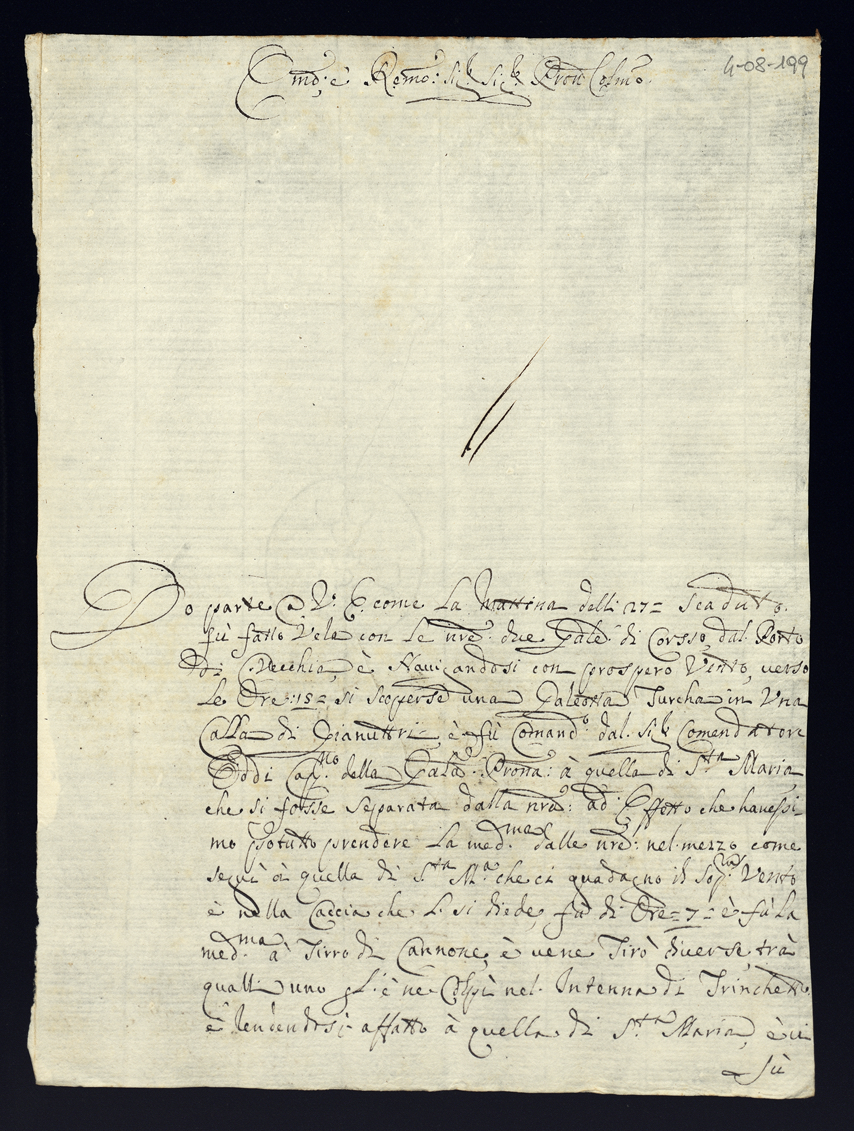 Em͂o: è Re͂mo: Sig.r Sig.r Pron͂ Col͂mo
4-08-199
Do parte a V. E. come La Mattina delli 27= Scaduto.
fù fatto Vele con le nr͂e due Gale.e di Corsso, dal Porto
Di C.Vecchia, è Navigandosi con prospero Vento, verso
Le Ore :15= si scoperse una Galeotta Turcha in Vna
Calla di Gianuttri, è fù Comand.o dal. Sig.r Comendatore
Oddi Cap.no della Gala. Prona: à quella di S.ta Maria
che si fosse Separata dalla nr͂a: ad Effetto che havessi
mo potutto prendere La med.ma dalle nr͂e: nel mezzo come
seguì à quella di S.ta M.a che ci guadagno il Vento
è nella Caccia che L. si diede, fù di Ore= 7= è fù La
med.ma à Tirro di Cannone, è vene Tirò diverse trà
qualli uno gl'è ne Colpì nel. Intenna di Trinchetto
è Rendendosi affatto à quella di S.ta Maria, è vi
Fù